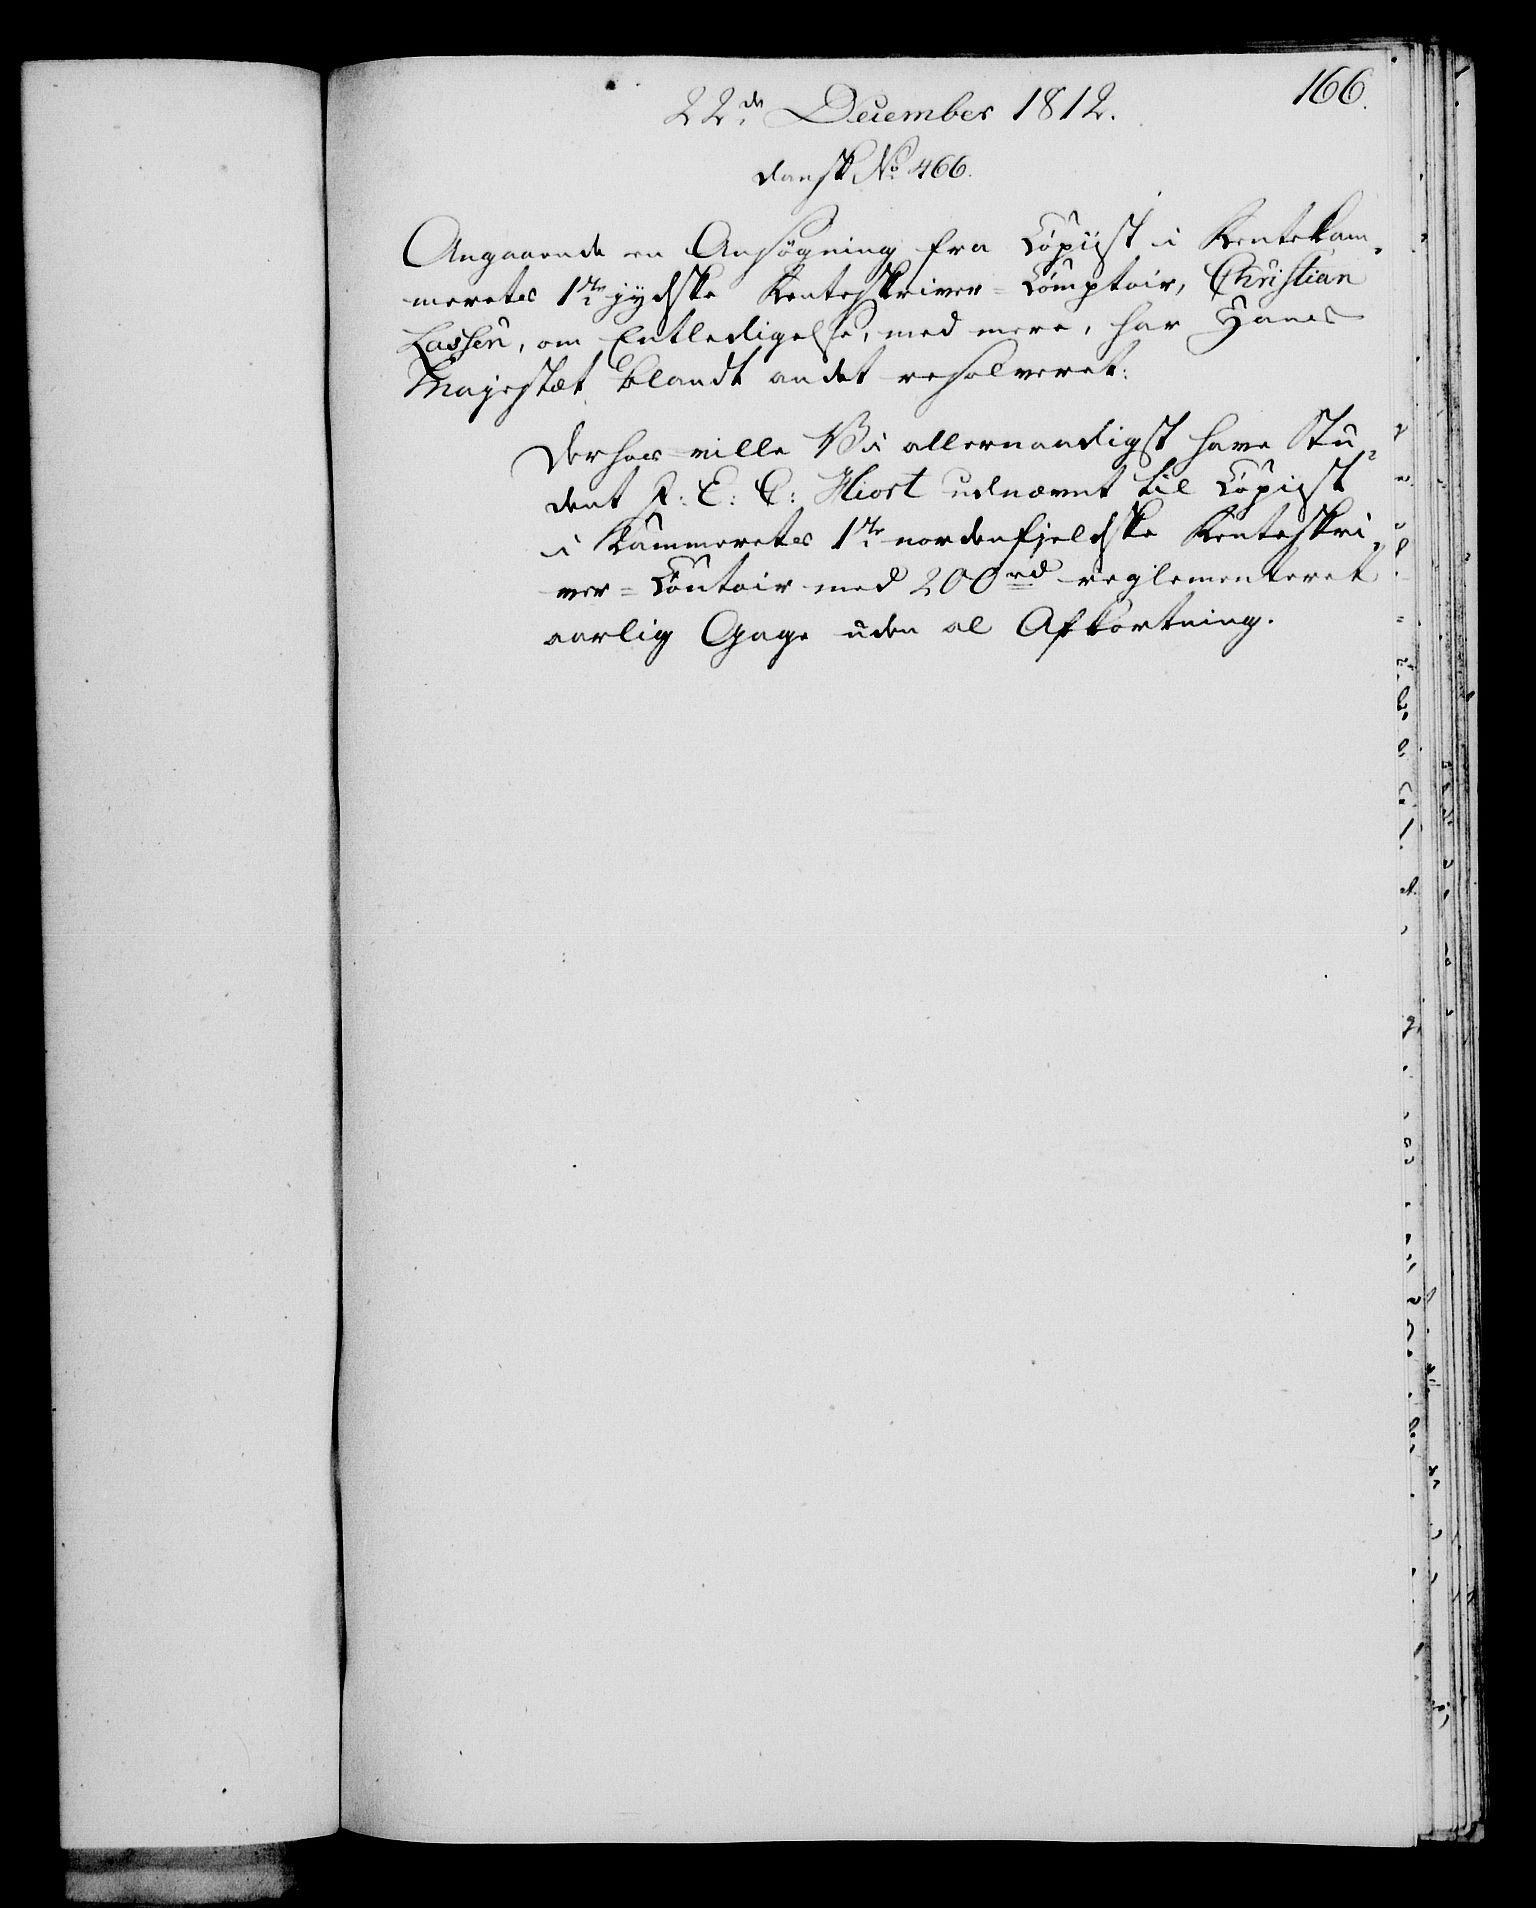 166.
22de December 1812.
dansk No 466.
Angaaende en Ansøgning fra Copiist i Rentekam-
merets 1te jydske Renteskriver-Comptoir, Christian
Lassen, om Entledigelse, med mere, har Hans
Majestæt blandt andet resolveret:
Derhos ville Vi allernaadigst have Stu-
dent F: E: C: Hiort udnævnt til Copiist
i Kammerets 1te nordenfjeldske Renteskri-
ver-Contoir med 200 rd reglementeret
aarlig Gage uden al Afkortning.